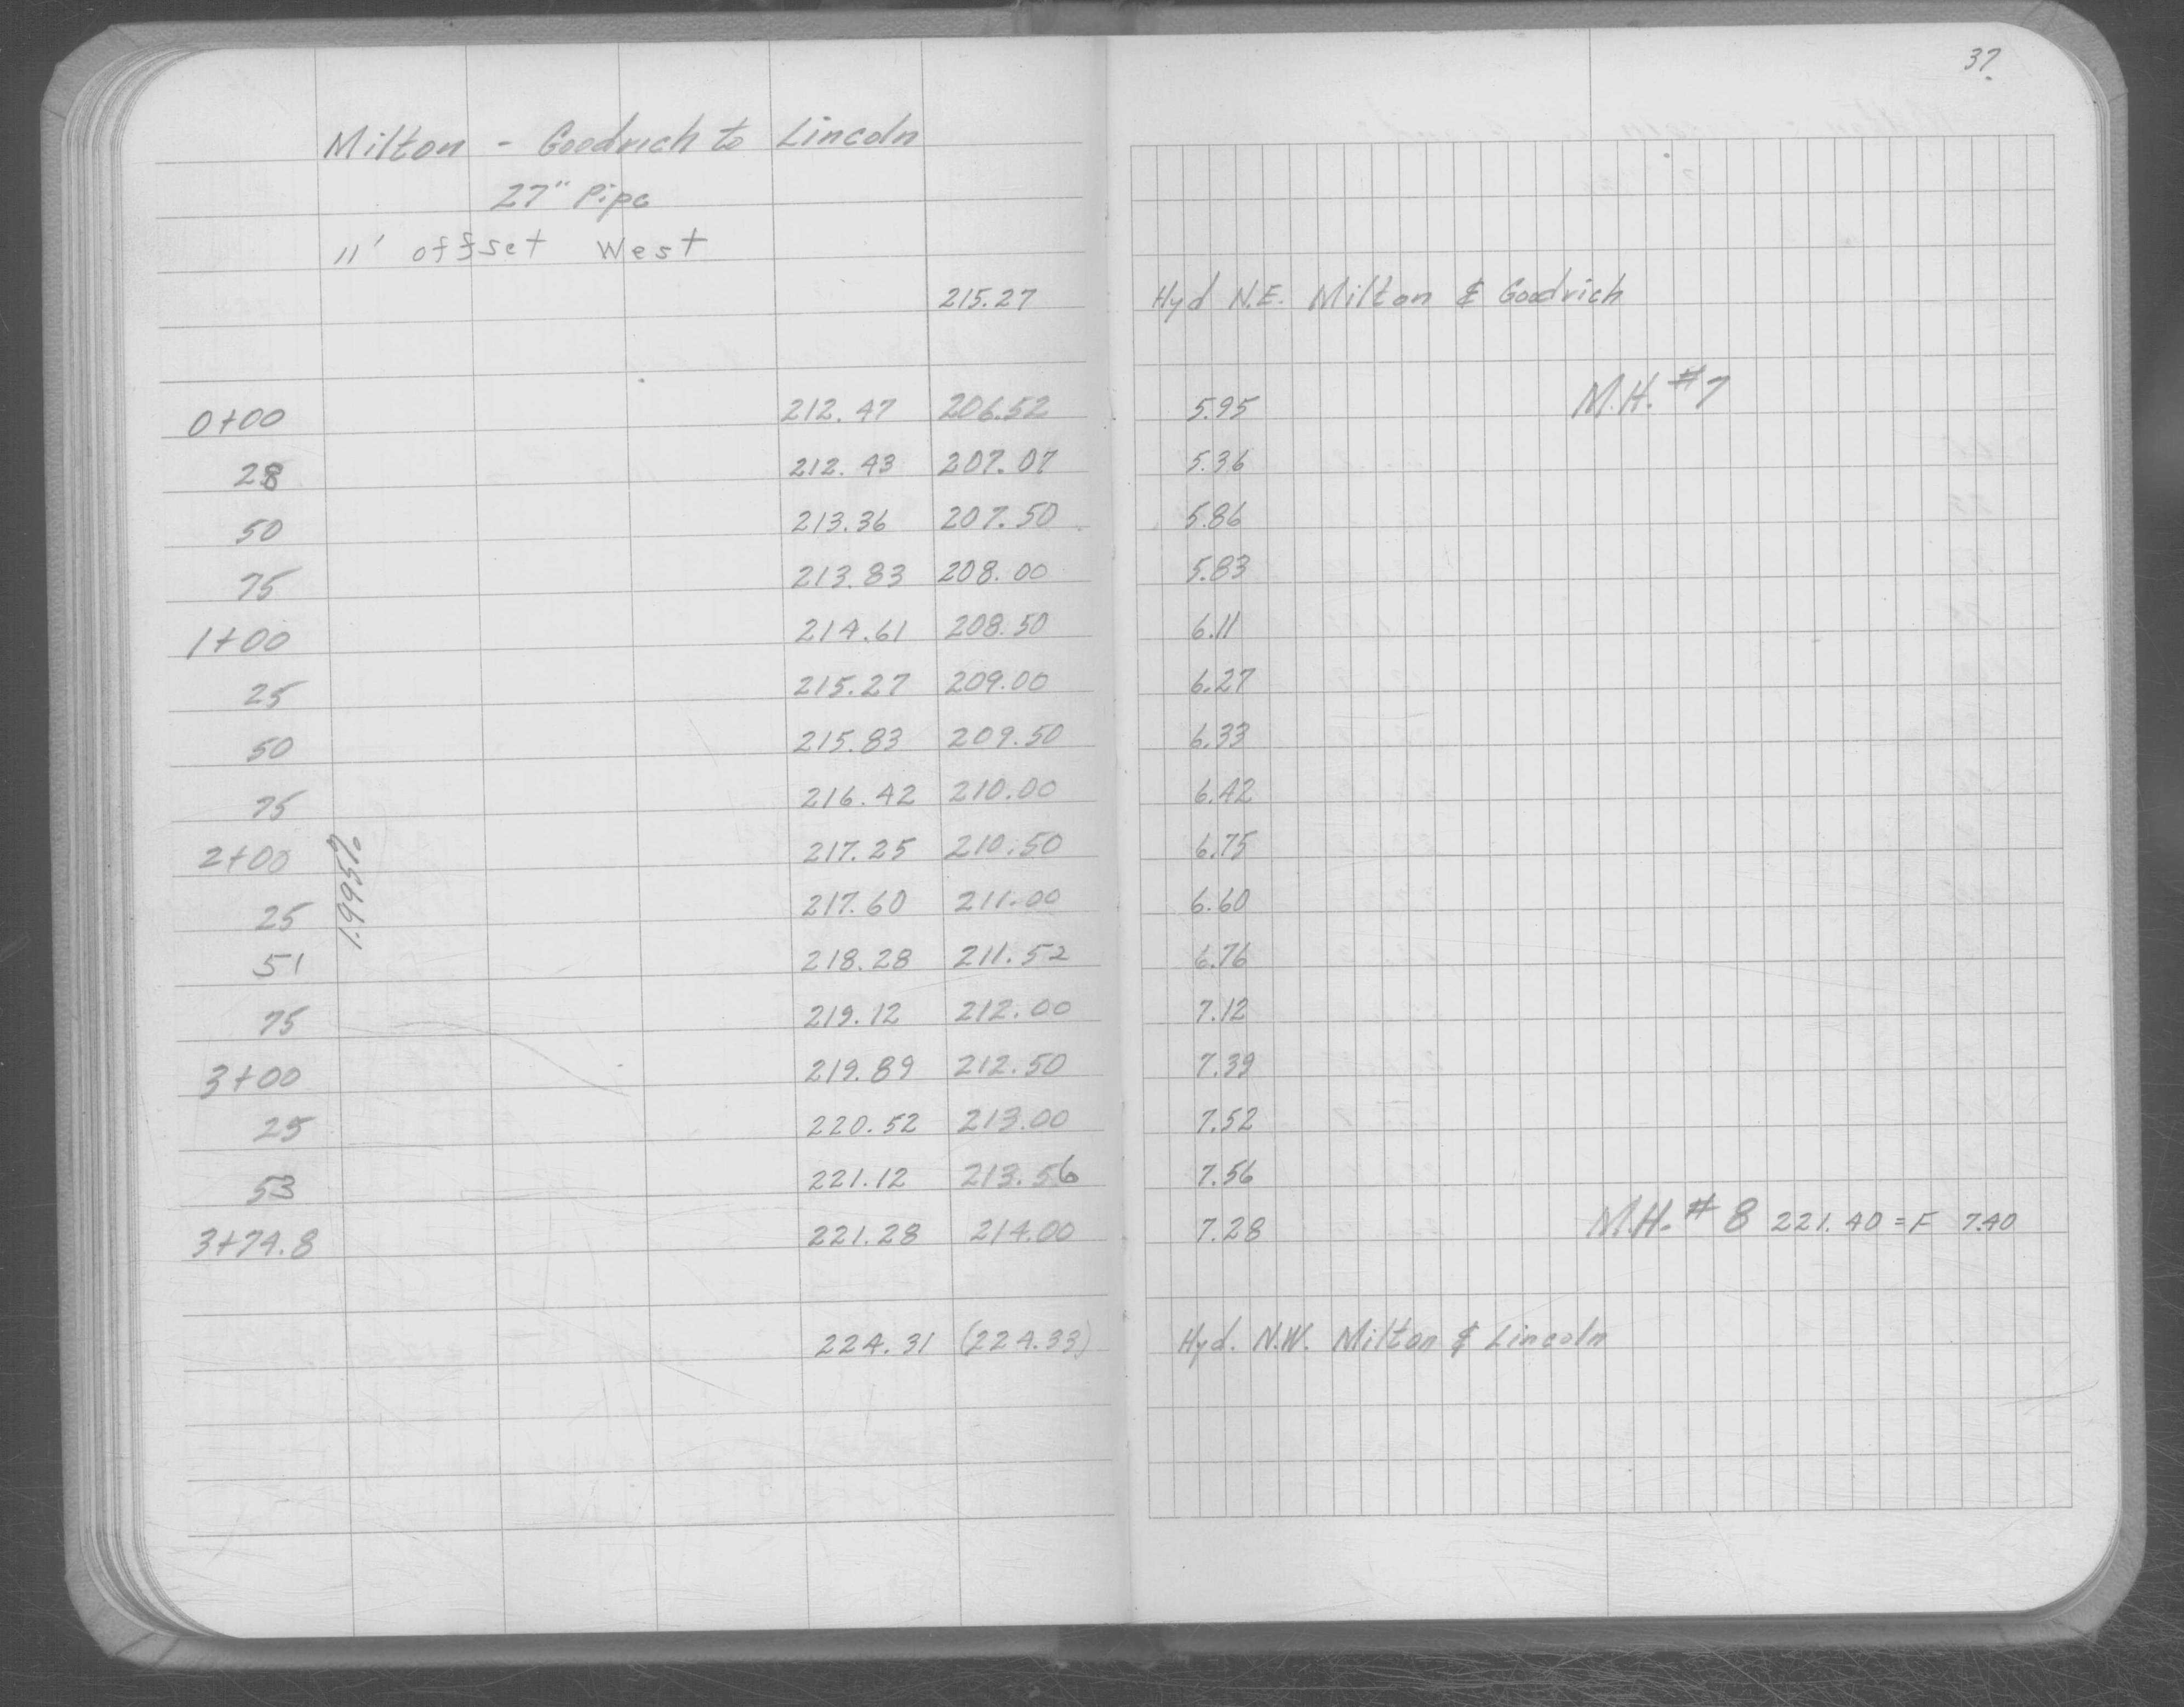 37.
Milton - Goodrich to Lincoln
27" Pipe
11' offset West
215.27 Hyd N.E. Milton & Goodrich
0+00 212.47 206.52 5.95 M.H. #7
28 212.43 207.07 5.36
50 213.36 207.50 5.86
75 213.83 208.00 5.83
1+00 214.61 208.50 6.11
25 215.27 209.00 6.27
50 215.83 209.50 6.33
75 216.42 210.00 6.42
2+00 217.25 210.50 6.75
1.995%
25 217.60 211.00 6.60
51 218.28 211.52 6.76
75 219.12 212.00 7.12
3+00 219.89 212.50 7.39
25 220.52 213.00 7.52
53 221.12 213.56 7.56
3+74.8 221.28 214.00 7.28 M.H. #8 221.40 = F 7.40
224.31 (224.33) Hyd. N.W. Milton & Lincoln